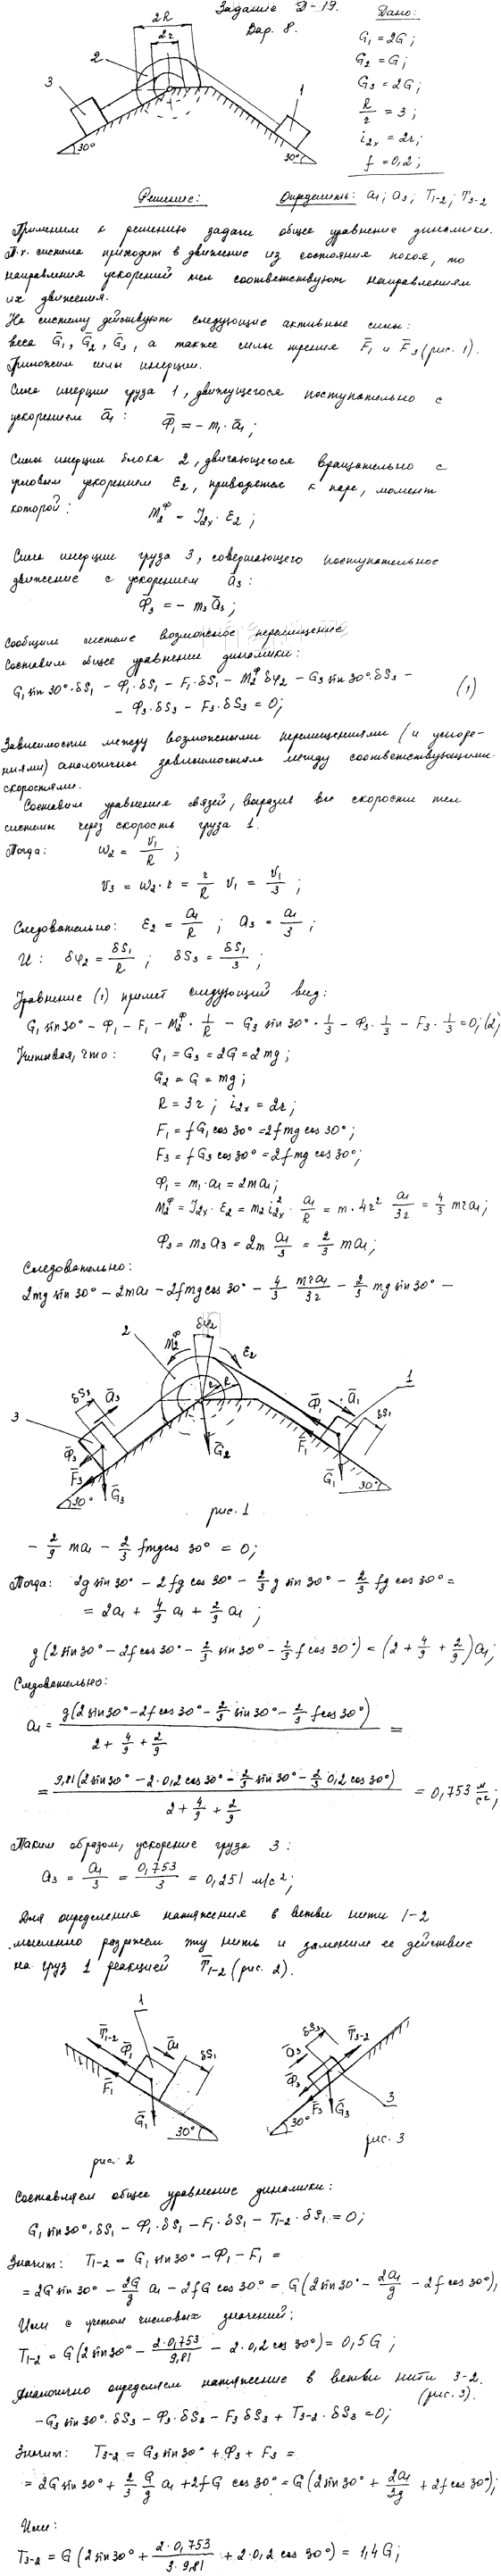 Задание Д-19.
Вар. 8.
Дано:
G₁ = 2G;
G₂ = G;
G₃ = 2G;
R/r = 3;
i₂ₓ = 2r;
f = 0,2;
2R
2r
2
3
1
30°
30°
Решение:
Определить: a₁; a₃; T₁₋₂; T₃₋₂
Применим к решению задачи общее уравнение динамики.
Т.к. система приходит в движение из состояния покоя, то
направления ускорений тел соответствуют направлениям
их движения.
На систему действуют следующие активные силы:
веса G̅₁, G̅₂, G̅₃, а также силы трения F̅₁ и F̅₃ (рис. 1).
Приложим силы инерции.
Сила инерции груза 1, движущегося поступательно с
ускорением a̅₁: Φ̅₁ = – m₁·a̅₁;
Силы инерции блока 2, двигающегося вращательно с
угловым ускорением ε₂, приводятся к паре, момент
которой: M₂ᶲ = J₂ₓ·ε₂;
Сила инерции груза 3, совершающего поступательное
движение с ускорением a̅₃:
Φ̅₃ = – m₃a̅₃;
Сообщим системе возможное перемещение
Составим общее уравнение динамики:
G₁ sin 30°·δS₁ – Φ₁·δS₁ – F₁·δS₁ – M₂ᶲ δφ₂ – G₃ sin 30°·δS₃ –
– Φ₃·δS₃ – F₃·δS₃ = 0; (1)
Зависимости между возможными перемещениями (и ускоре-
ниями) аналогичны зависимостям между соответствующими
скоростями.
Составим уравнения связей, выразив все скорости тел
системы через скорость груза 1.
Тогда: ω₂ = v₁/R;
v₃ = ω₂·r = r/R v₁ = v₁/3;
Следовательно: ε₂ = a₁/R; a₃ = a₁/3;
И: δφ₂ = δS₁/R; δS₃ = δS₁/3;
Уравнение (1) примет следующий вид:
G₁ sin 30° – Φ₁ – F₁ – M₂ᶲ·1/R – G₃ sin 30°·1/3 – Φ₃·1/3 – F₃·1/3 = 0; (2)
Учитывая, что: G₁ = G₃ = 2G = 2mg;
G₂ = G = mg;
R = 3r; i₂ₓ = 2r;
F₁ = fG₁ cos 30° = 2fmg cos 30°;
F₃ = fG₃ cos 30° = 2fmg cos 30°;
Φ₁ = m₁·a₁ = 2ma₁;
M₂ᶲ = J₂ₓ·ε₂ = m₂i₂ₓ²·a₁/R = m·4r² a₁/3r = 4/3 mra₁;
Φ₃ = m₃a₃ = 2m a₁/3 = 2/3 ma₁;
Следовательно:
2mg sin 30° – 2ma₁ – 2fmg cos 30° – 4/3 mra₁/3r – 2/3 mg sin 30° –
δφ₂
M₂ᶲ
ε₂
2
r
R
δS₃
a̅₃
3
Φ̅₃
F̅₃
G̅₃
30°
G̅₂
Φ̅₁
a̅₁
1
δS₁
F̅₁
G̅₁
30°
рис. 1
– 2/9 ma₁ – 2/3 fmg cos 30° = 0;
Тогда: 2g sin 30° – 2fg cos 30° – 2/3 g sin 30° – 2/3 fg cos 30° =
= 2a₁ + 4/9 a₁ + 2/9 a₁;
g(2 sin 30° – 2f cos 30° – 2/3 sin 30° – 2/3 f cos 30°) = (2 + 4/9 + 2/9)a₁;
Следовательно:
a₁ = g(2 sin 30° – 2f cos 30° – 2/3 sin 30° – 2/3 f cos 30°) / (2 + 4/9 + 2/9) =
= 9,81(2 sin 30° – 2·0,2 cos 30° – 2/3 sin 30° – 2/3 0,2 cos 30°) / (2 + 4/9 + 2/9) = 0,753 м/с²;
Таким образом, ускорение груза 3:
a₃ = a₁/3 = 0,753/3 = 0,251 м/с²;
Для определения натяжения в ветви нити 1-2
мысленно разрежем эту нить и заменим ее действие
на груз 1 реакцией T̅₁₋₂ (рис. 2).
1
T̅₁₋₂
Φ̅₁
a̅₁
δS₁
F̅₁
G̅₁
30°
рис. 2
δS₃
T̅₃₋₂
a̅₃
Φ̅₃
F̅₃
G̅₃
3
30°
рис. 3
Составляем общее уравнение динамики:
G₁ sin 30°·δS₁ – Φ₁·δS₁ – F₁·δS₁ – T₁₋₂·δS₁ = 0;
Значит: T₁₋₂ = G₁ sin 30° – Φ₁ – F₁ =
= 2G sin 30° – 2G/g a₁ – 2fG cos 30° = G(2 sin 30° – 2a₁/g – 2f cos 30°);
Или с учетом числовых значений:
T₁₋₂ = G(2 sin 30° – 2·0,753/9,81 – 2·0,2 cos 30°) = 0,5G;
Аналогично определяем натяжение в ветви нити 3-2.
(рис. 3).
–G₃ sin 30°·δS₃ – Φ₃·δS₃ – F₃ δS₃ + T₃₋₂·δS₃ = 0;
Значит: T₃₋₂ = G₃ sin 30° + Φ₃ + F₃ =
= 2G sin 30° + 2/3 G/g a₁ + 2fG cos 30° = G(2 sin 30° + 2a₁/3g + 2f cos 30°);
Или:
T₃₋₂ = G(2 sin 30° + 2·0,753/3·9,81 + 2·0,2 cos 30°) = 1,4G;